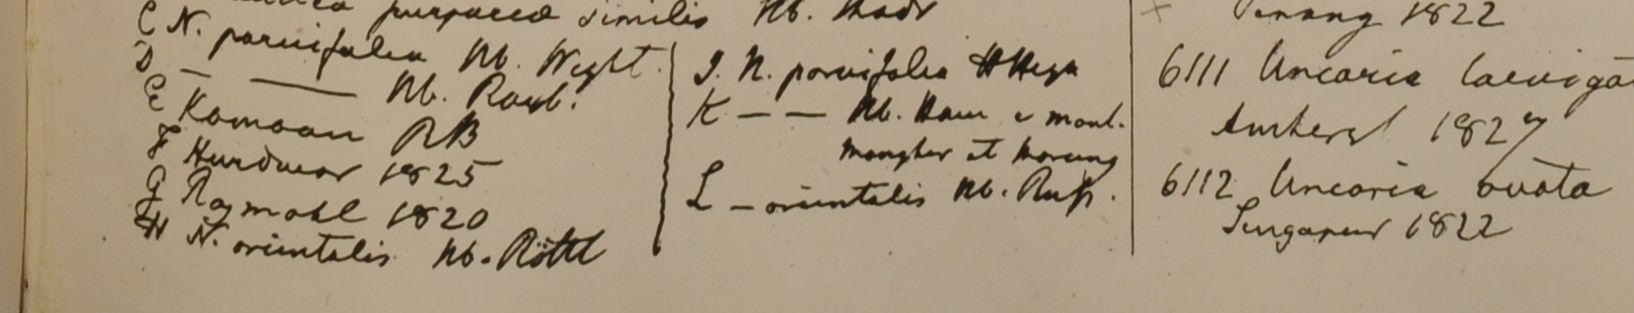 purpurea similis Hb. Madr
C N. parvifolia Hb. Wight
D — —— Hb. Roxb.
E Kamoan RB
F Hurdwar 1825
G Rajmahl 1820
H N. orientalis Hb. Röttl
I. N. parvifolia H Heyn
K — — Hb. Ham e mont.
Mongher et Morung
L — orientalis Hb. Russ.
Penang 1822
6111 Uncaria laeviga
Amherst 1827
6112 Uncaria ovata
Singapur 1822